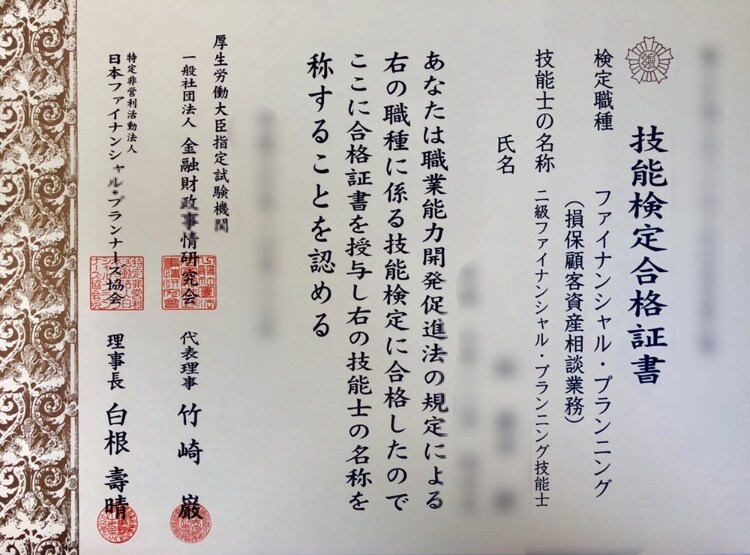 技能検定合格証書
検定職種　ファイナンシャル・プランニング
（損保顧客資産相談業務）
技能士の名称　二級ファイナンシャル・プランニング技能士
氏名
あなたは職業能力開発促進法の規定による
右の職種に係る技能検定に合格したので
ここに合格証書を授与し右の技能士の名称を
称することを認める
厚生労働大臣指定試験機関
一般社団法人　金融財政事情研究会　代表理事　竹崎　巌
特定非営利活動法人
日本ファイナンシャル・プランナーズ協会　理事長　白根　壽晴